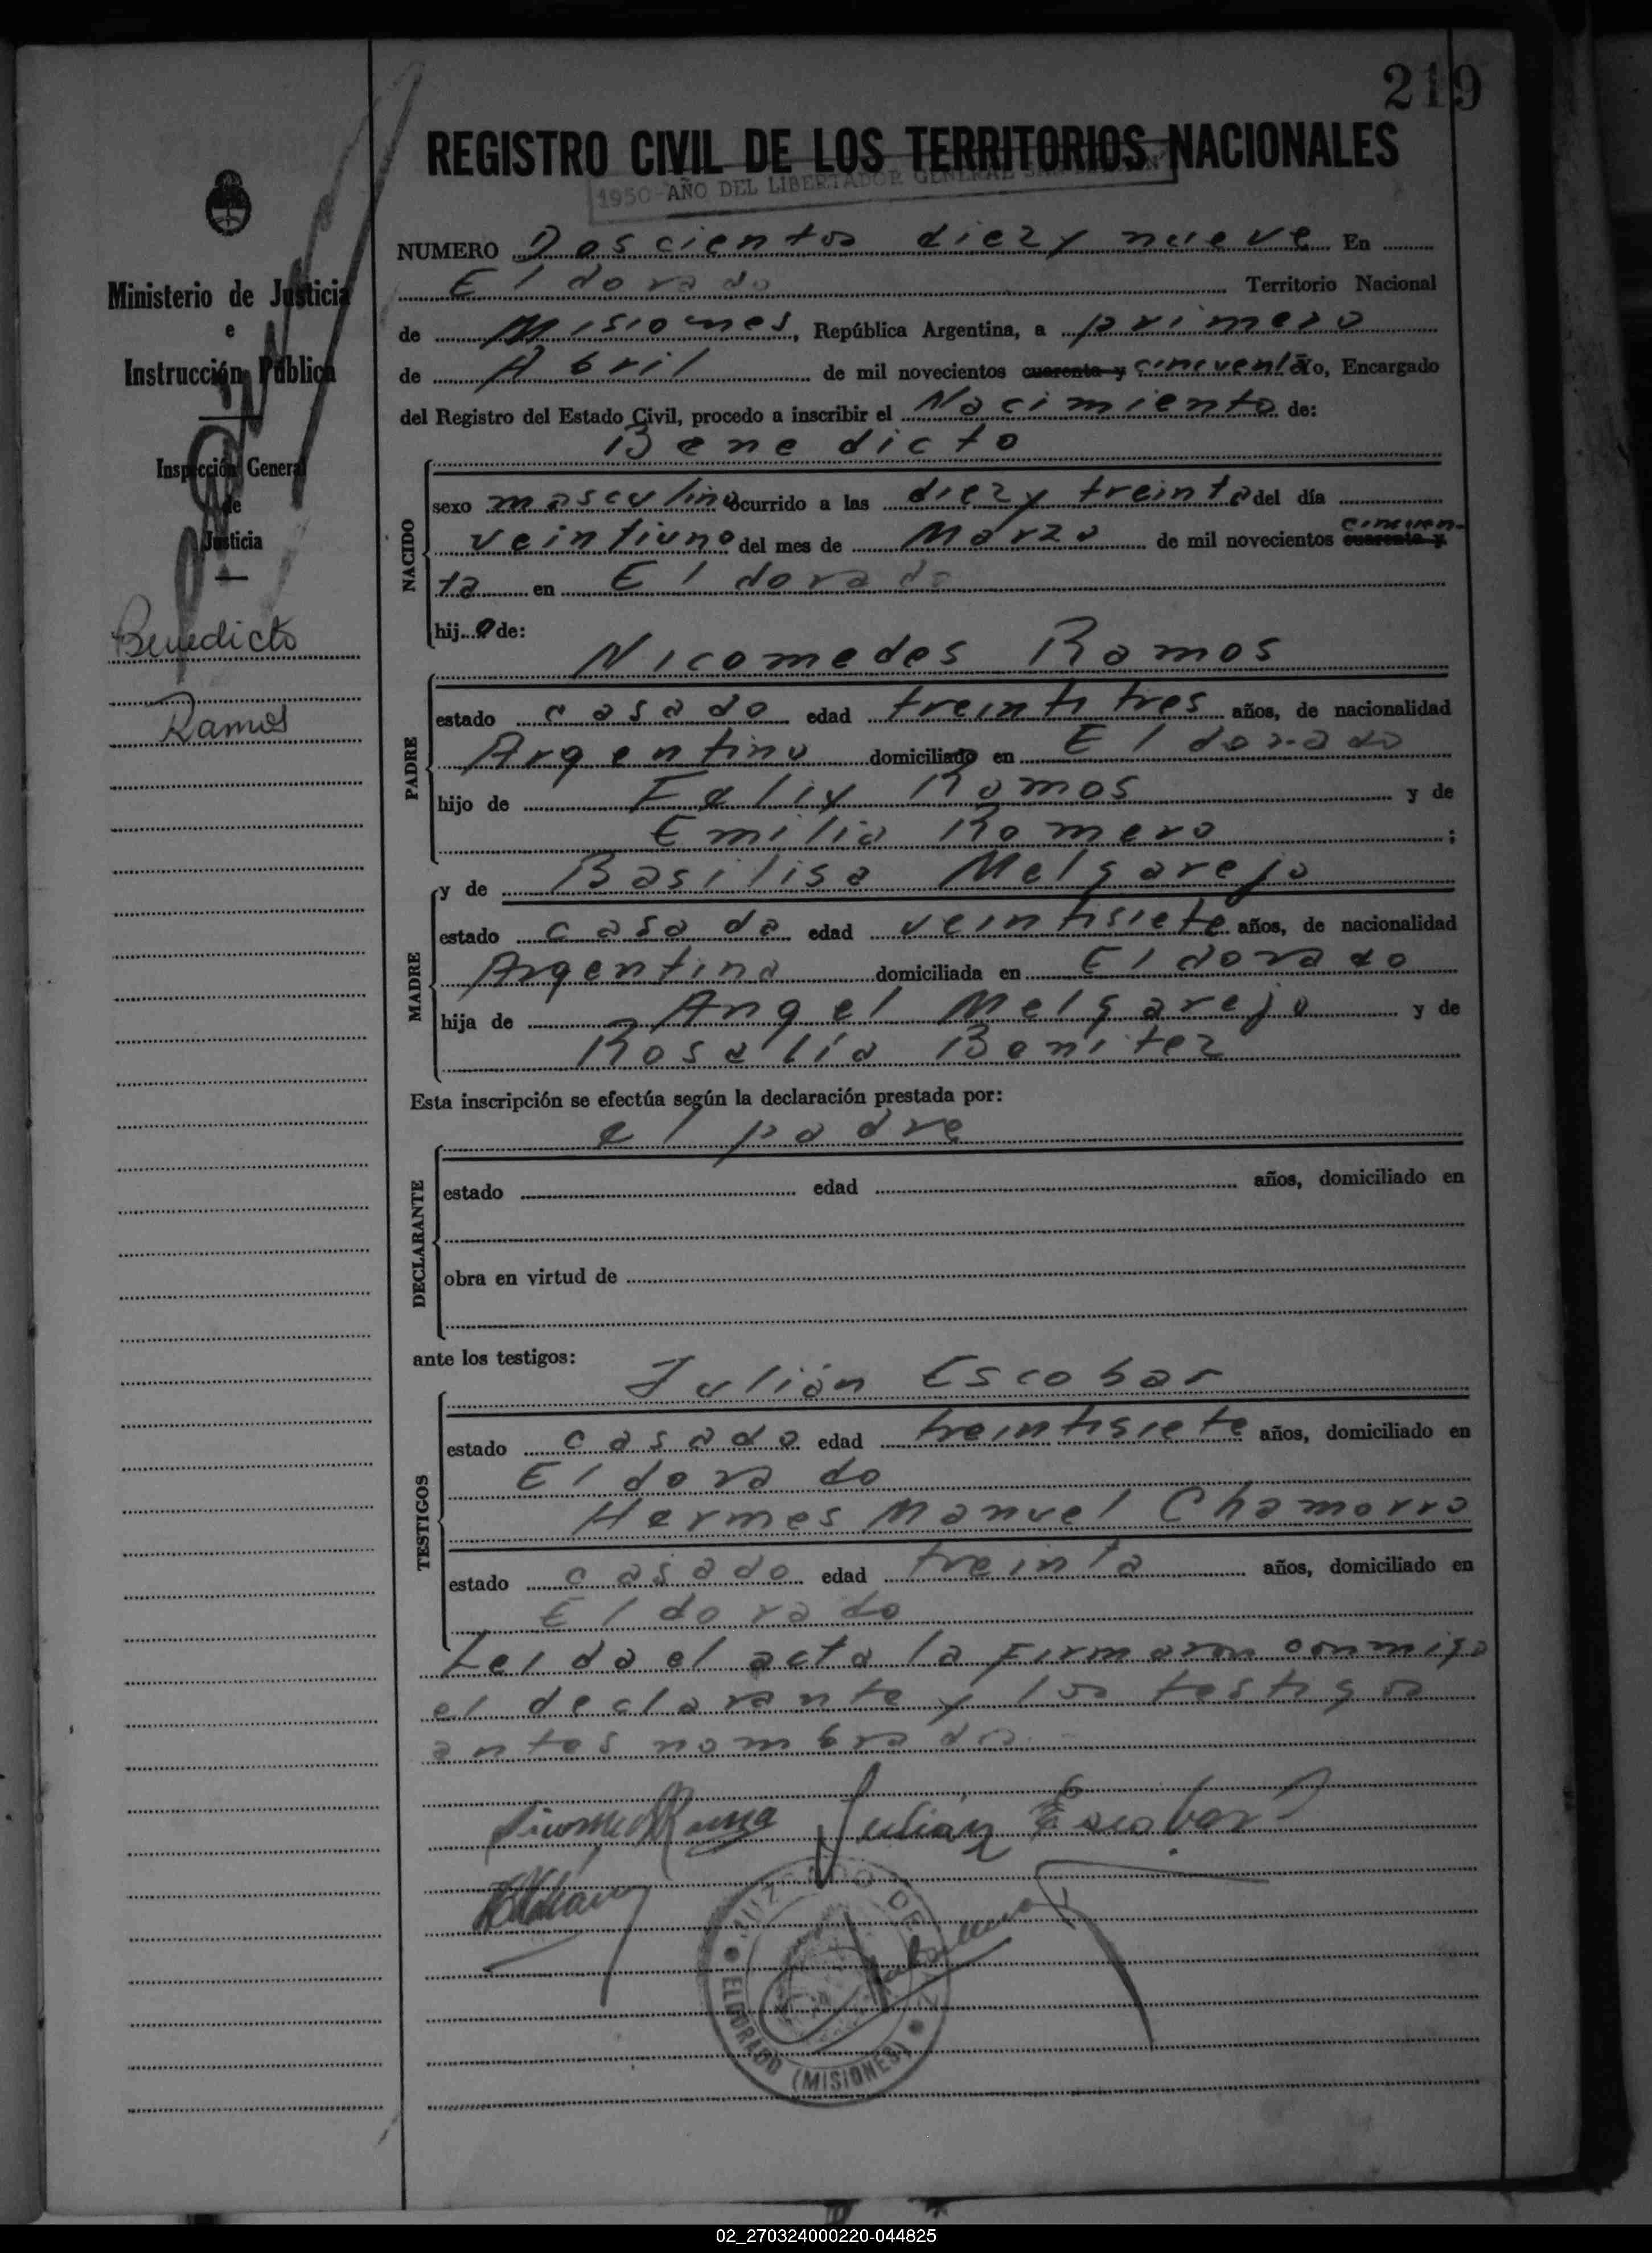 219
REGISTRO CIVIL DE LOS TERRITORIOS NACIONALES
1950-AÑO DEL LIBERTADOR GENERAL SAN MARTIN
Ministerio de Justicia
e
Instrucción Pública
Inspección General
de
Justicia
Benedicto
Ramos
NUMERO Doscientos diez y nueve En
Eldorado Territorio Nacional
de Misiones, República Argentina, a primero
de Abril de mil novecientos cuarenta y cincuenta yo, Encargado
del Registro del Estado Civil, procedo a inscribir el Nacimiento de:
Benedicto
NACIDO
sexo masculino ocurrido a las diez y treinta del día
veintiuno del mes de Marzo de mil novecientos cuarenta y cincuen-
ta en Eldorado
hijo de:
Nicomedes Ramos
PADRE
estado casado edad treintitres años, de nacionalidad
Argentino domiciliado en Eldorado
hijo de Felix Ramos y de
Emilia Romero ;
y de Basilisa Melgarejo
MADRE
estado casada edad veintisiete años, de nacionalidad
Argentina domiciliada en Eldorado
hija de Angel Melgarejo y de
Rosalía Benitez
Esta inscripción se efectúa según la declaración prestada por:
el padre
DECLARANTE
estado edad años, domiciliado en
obra en virtud de
ante los testigos:
Julián Escobar
TESTIGOS
estado casado edad treintisiete años, domiciliado en
Eldorado
Hermes Manuel Chamorro
estado casado edad treinta años, domiciliado en
Eldorado
Leida el acta la firmaron conmigo
el declarante y los testigos
antes nombrados
Julián Escobar
JUZGADO DE
ELDORADO (MISIONES)
02_270324000220-044825